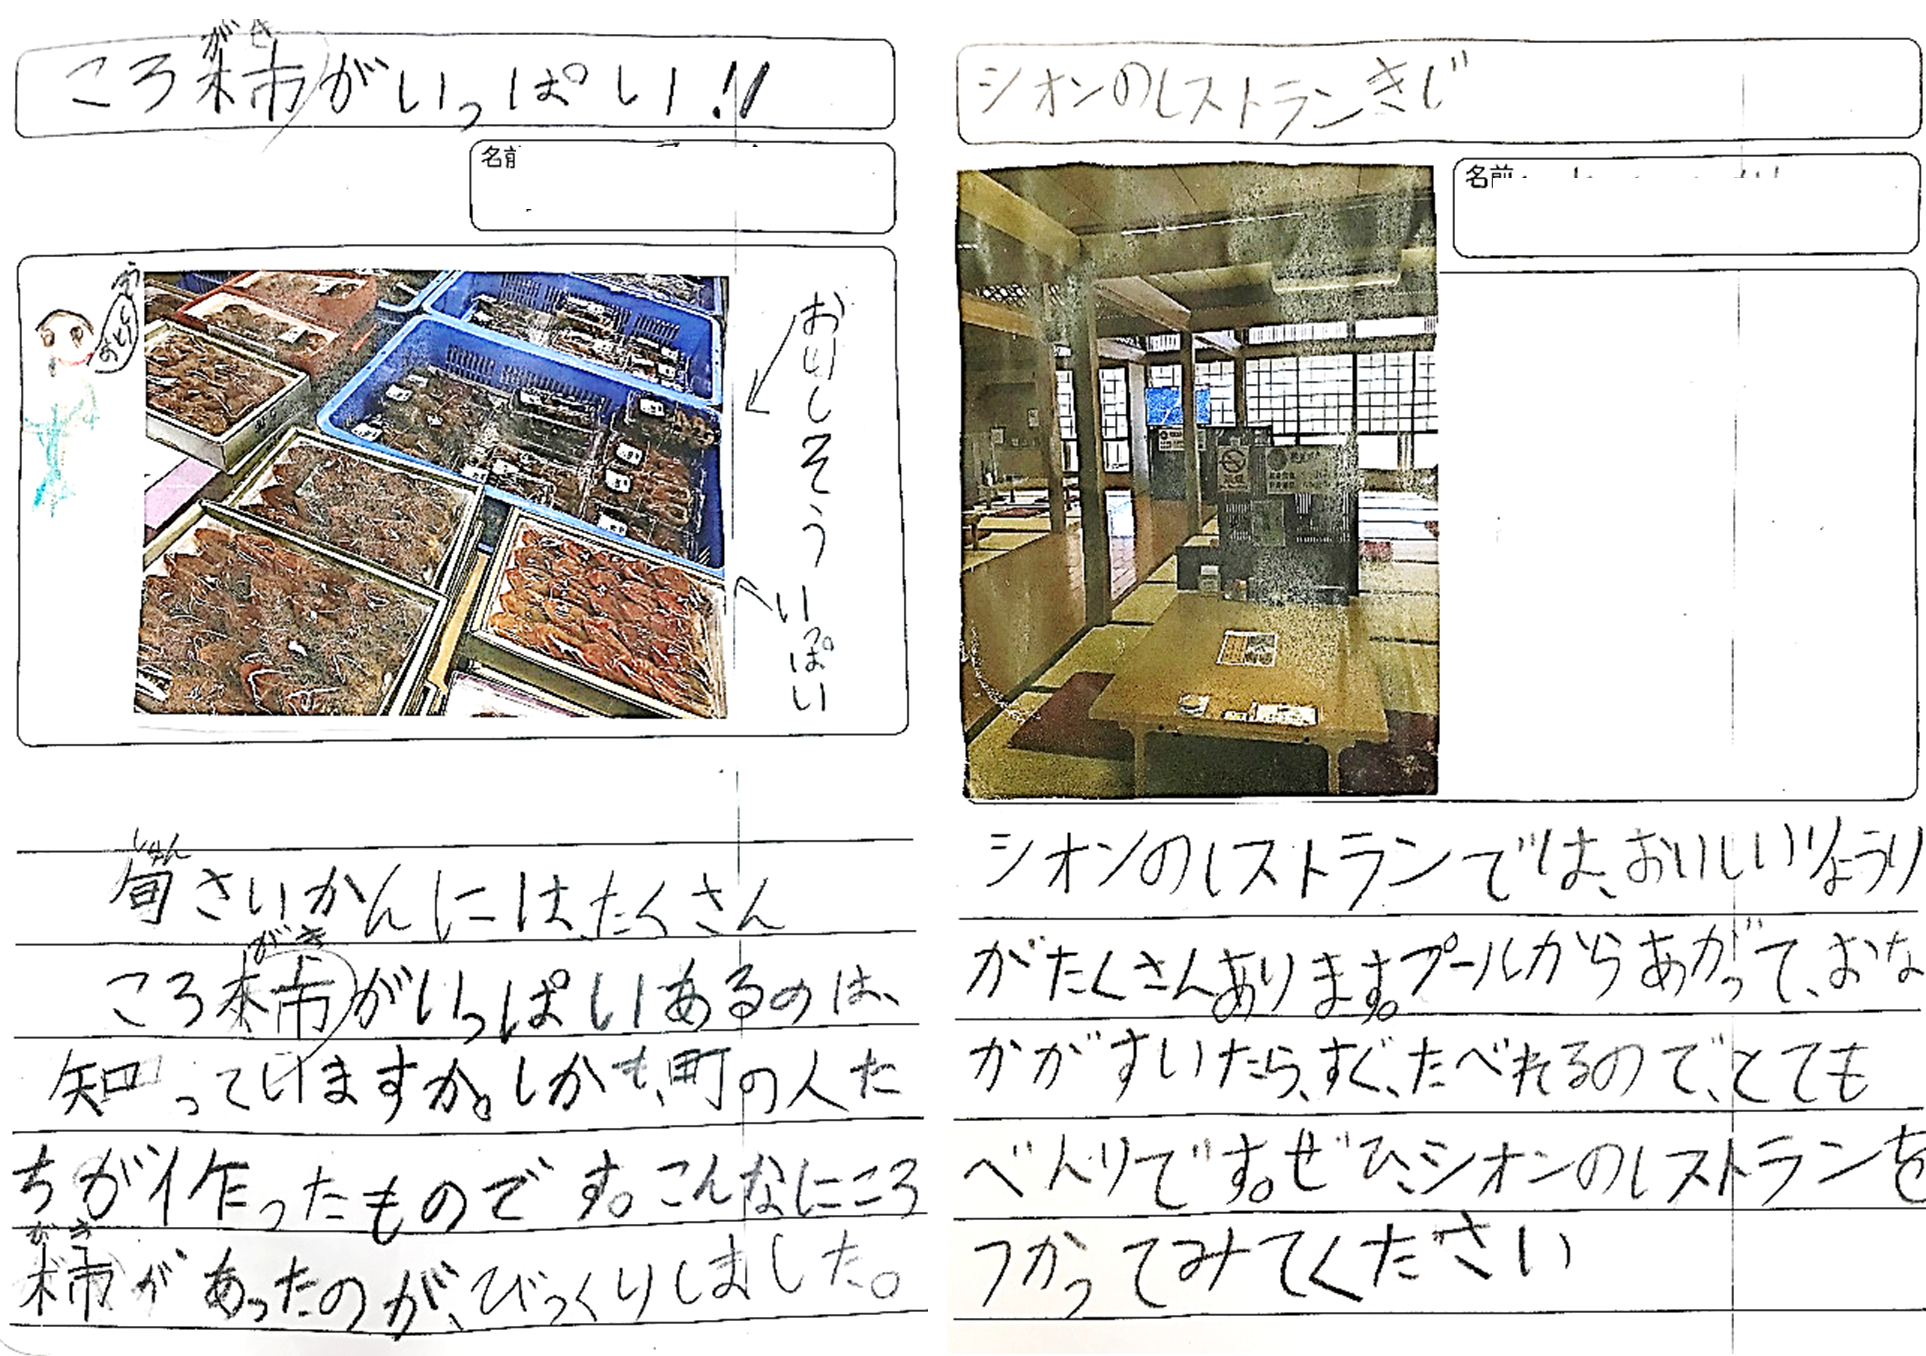 がき
ころ柿がいっぱい!!
名前
おいしそう
いっぱい
しゅん
旬さいかんには、たくさん
がき
ころ柿がいっぱいあるのは、
知っていますか。しかも、町の人た
ちが作ったものです。こんなにころ
がき
柿があったのが、びっくりしました。
シオンのレストランきじ
名前
シオンのレストランでは、おいしいりょうり
がたくさんあります。プールからあがって、おな
かがすいたら、すぐ、たべれるので、とても
べんりです。ぜひ、シオンのレストランを
つかってみてください